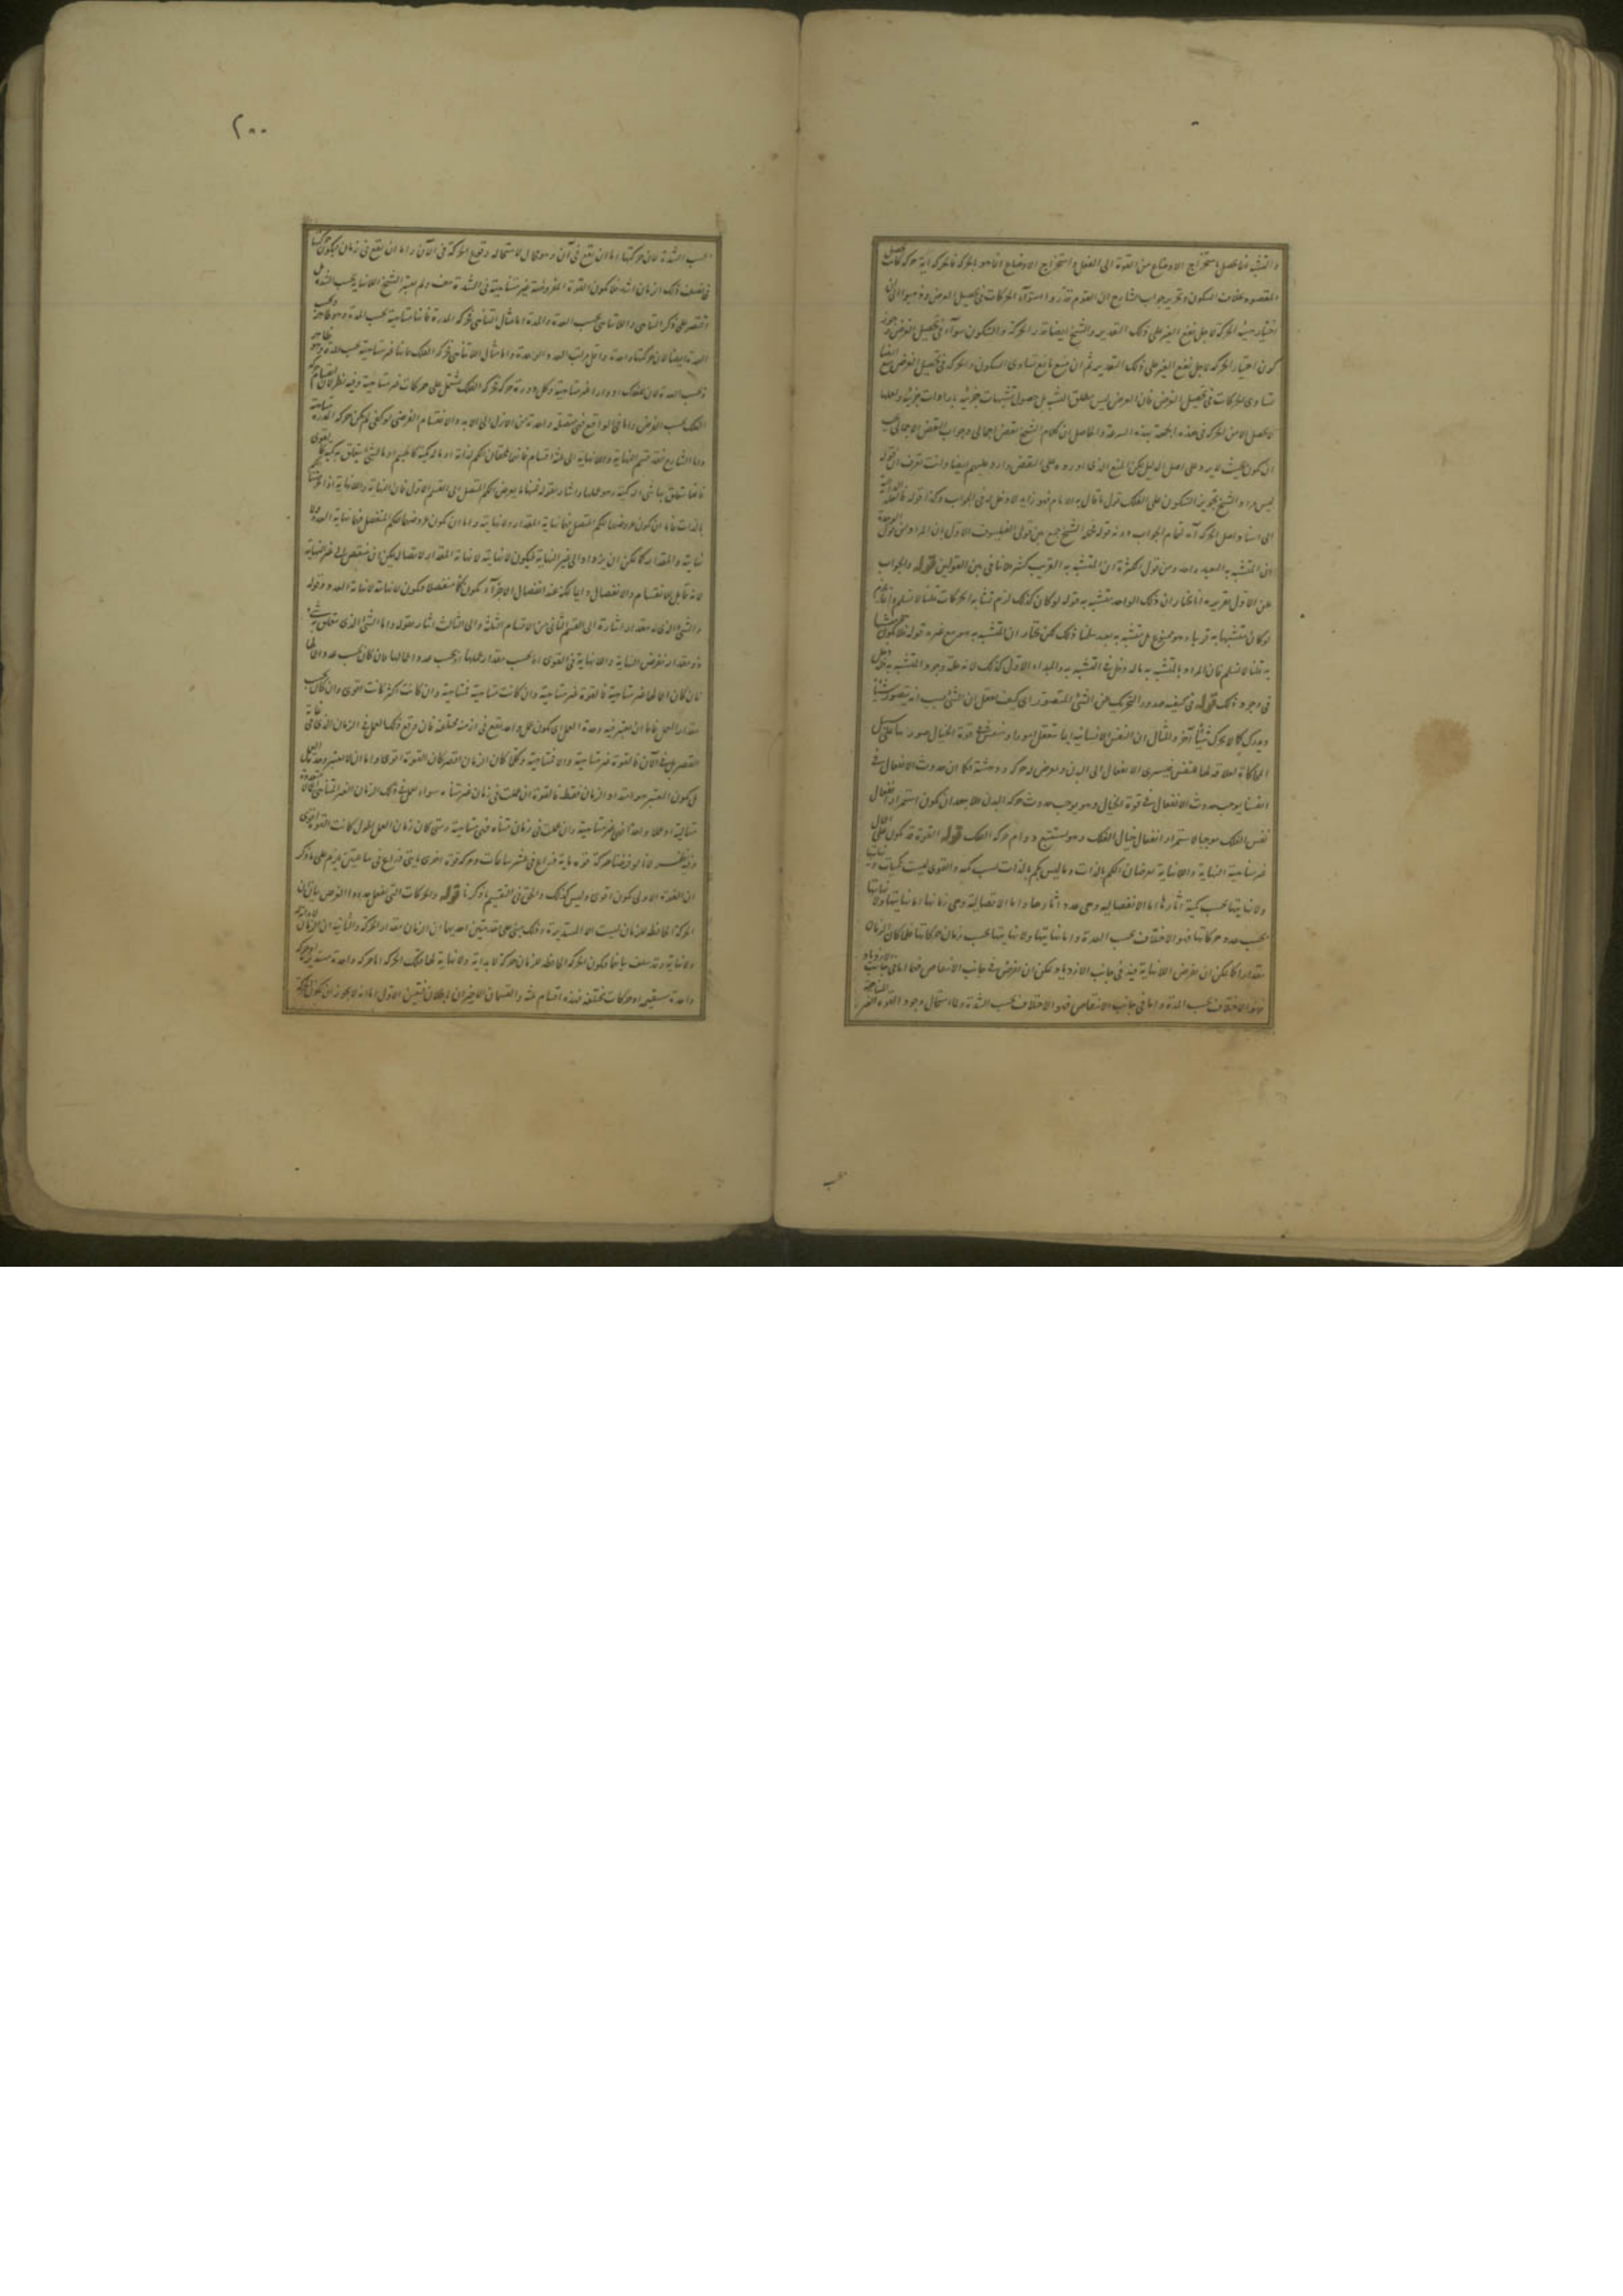 والتشبه انما يحصل باستخراج الاوضاع من القوة الى الفعل واستخراج الاوضاع انما هو بالحركة فالحركة اية حركة كانت تحصل
المقصود بخلاف السكون وتقرير جواب الشارح ان القوم قدروا استواء الحركات فى تحصيل الغرض وذهبوا الى ان
اختيار هيئة الحركة لاجل نفع الغير على ذلك التقدير والشيخ ايضا قدر الحركة والسكون سواء فى تحصيل الغرض وجوز
كون اختيار الحركة لاجل نفع الغير على ذلك التقدير ثم ان منع مانع تساوى السكون والحركة فى تحصيل الغرض منع ايضا
تساوى الحركات فى تحصيل الغرض فان الغرض ليس مطلق التشبه بل حصول تشبهات جزئية بارادات جزئية ولعلها
لا يحصل الا من الحركة فى هذه الجهة بهذه السرعة والحاصل ان كلام الشيخ نقض اجمالى وجواب النقض الاجمالى يجب
ان يكون بحيث لا يرد على اصل الدليل لكن المنع الذى اورده على النقض وارد عليهم ايضا وانت تعرف ان قوله
ليس مراد الشيخ تجويز السكون على الفلك قول ما قال به الامام فهو زايد لا دخل له فى الجواب وكذا قوله فالعلة
الى اسناد اصل الحركة آه تمام الجواب دونه قوله لعل الشيخ جمع بين قولى الفيلسوف الاول بان المراد من قول
ان المتشبه به البعيد واحد ومن قول الكثرة ان المتشبه به القريب كثير فلا تنافى بين القولين قوله والجواب
عن الاول تقريره انا نختار ان ذلك الواحد متشبه به قوله لو كان كذلك لزم تشابه الحركات قلنا لا نسلم وانما يلزم
لو كان متشبها به قريبا وهو ممنوع بل متشبه به بعيد سلمنا ذلك لكن نختار ان المتشبه به هو مع غيره قوله فلا يكون متشبها
به قلنا لا نسلم فان المراد بالمتشبه به ما له دخل فى التشبه به والمبداء الاول كذلك لانه علة وجود المتشبه به فله دخل
فى وجود ذلك قوله فى كيفية صدور التحريك عن الشئ المتصور اى كيف يعقل ان الشئ بسبب انه يتصور شيئا
ويدرك كمالا يحرك شيئا آخر والمثال ان النفس الانسانية اذا تتعقل امورا وتنتقش فى قوة الخيال صورها على سبيل
المحاكاة لعلاقة لها بالنفس فيسرى الانفعال الى البدن ويعرض له حركة ودهشة فكما ان حدوث الانفعال فى
انفسنا يوجب حدوث الانفعال فى قوة الخيال وهو يوجب حدوث حركة البدن فلا يبعد ان يكون استمرار انفعال
نفس الفلك موجبا لاستمرار انفعال خيال الفلك وهو يستتبع دوام حركة الفلك قوله القوة قد يكون على اعمال
غير متناهية النهاية واللانهاية يعرضان الكم بالذات وما ليس بكم بالذات لسبب كميته والقوى ليست كميات ونهايتها
ولا نهايتها بحسب كمية آثارها اما الانفصالية وهى عدد آثارها واما الاتصالية وهى زمانها اما نهايتها ولا نهايتها
بحسب عدد حركاتها فهو الاختلاف بحسب العدة واما نهايتها ولا نهايتها بحسب زمان حركاتها فلما كان الزمان
مقدارا كما يمكن ان يفرض اللانهاية فيه فى جانب الازدياد يمكن ان يفرض فى جانب الانتقاص فهما اما فى جانب الازدياد
فهو الاختلاف بحسب المدة واما فى جانب الانتقاص فهو الاختلاف بحسب الشدة ولما استحال وجود القوة الغير المتناهية
بحسب
٢٠٠
بحسب الشدة لان حركتها اما ان يقع فى آن وهو محال لاستحالة وقوع الحركة فى الآن واما ان يقع فى زمان فيكون حركتها
فى نصف ذلك الزمان اشد فلا يكون القوة المفروضة غير متناهية فى الشدة هف ولم يعتبر الشيخ اللانهاية بحسب الشدة بل
اقتصر على ذكر التناهى واللاتناهى بحسب العدة والمدة اما مثال التناهى فحركة المدرة فانها متناهية بحسب المدة وهو ظاهر وبحسب
العدة ايضا لان حركتها واحدة واقل مراتب العدد الواحدة واما مثال اللاتناهى فحركة الفلك فانها غير متناهية بحسب المدة وهو ظاهر
وبحسب العدة فان للفلك ادوارا غير متناهية وكل دورة حركة فحركة الفلك يشتمل على حركات غير متناهية وفيه نظر فان انقسام حركة
الفلك بحسب الفرض واما فى الواقع فهى متصلة واحدة من الازل الى الابد والانقسام الفرضى لو كفى لم يكن حركة المدرة متناهية
واما الشارح فقد قسم النهاية واللانهاية الى ثلثة اقسام فانهما يلحقان الكم لذاته او ما له كمية كالجسم او ما لشئ يتعلق به كمية كالقوى
فانها يتعلق بها شئ له كمية وهو عملها واشار بقوله فمنها ما يعرض للكم المتصل الى القسم الاول فان النهاية واللانهاية اذا عرضتا الكم
بالذات فاما ان يكون عروضهما للكم المتصل فهما نهاية المقدار ولا نهايته واما ان يكون عروضهما للكم المنفصل فهما نهاية العدد ولا
نهايته والمقدار كما يمكن ان يزداد الى غير النهاية فيكون لا نهايته لا نهاية المقدار لاتصاله يمكن ان ينتقص الى غير النهاية
لانه قابل للانقسام والانفصال دايما لكنه عند انفصال الاجزاء يكون كما منفصلا ويكون لا نهايته لا نهاية العدد وقوله
والشئ الذى له مقدار اشارة الى القسم الثانى من الاقسام الثلثة والى الثالث اشار بقوله واما الشئ الذى يتعلق به شئ
ذو مقدار ففرض النهاية واللانهاية فى القوى اما بحسب مقدار عملها او بحسب عدد اعمالها فان كان بحسب عدد اعمالها
فان كان اعمالها غير متناهية فالقوة غير متناهية وان كانت متناهية فمتناهية وان كانت اكثر كانت اقوى وان كان بحسب
مقدار العمل فاما ان يعتبر فيه وحدة العمل اى يكون عمل واحد يقع فى ازمنة مختلفة فان وقع ذلك العمل فى الزمان الذى فى غاية
القصر بل فى الآن فالقوة غير متناهية والا فمتناهية وكلما كان الزمان اقصر كان القوة اقوى واما ان لا يعتبر وحدة العمل بل
يكون المعتبر هو امتداد الزمان فقط فالقوة ان عملت فى زمان غير متناه سواء عمل فى ذلك الزمان الغير المتناهى اعمالا متعددة
متتالية او عملا واحدا فهى غير متناهية وان عملت فى زمان متناه فهى متناهية ومتى كان زمان العمل اطول كانت القوة اقوى
وفيه نظر لانا لو فرضنا حركة قوة ماية فراع فى عشر ساعات وحركة قوة اخرى مايتى ذراع فى ساعتين يلزم على ما ذكر
ان القوة الاولى يكون اقوى وليس كذلك والحق فى التقسيم ما ذكرنا قوله والحركات التى يفعل حدودا الغرض بيان ان
الحركة الحافظة للزمان ليست الا المستديرة وذلك يبنى على مقدمتين احديهما ان الزمان مقدار الحركة والثانية ان الزمان لا بداية له
ولا نهاية وقد سلف بيانها فيكون الحركة الحافظة للزمان حركة لا بداية ولا نهاية لها فتلك الحركة اما حركة واحدة مستديرة او حركة
واحدة مستقيمة او حركات مختلفة فهذه اقسام ثلثة والقسمان الاخيران باطلان فتعين الاول اما انه لا يجوز ان يكون حركة